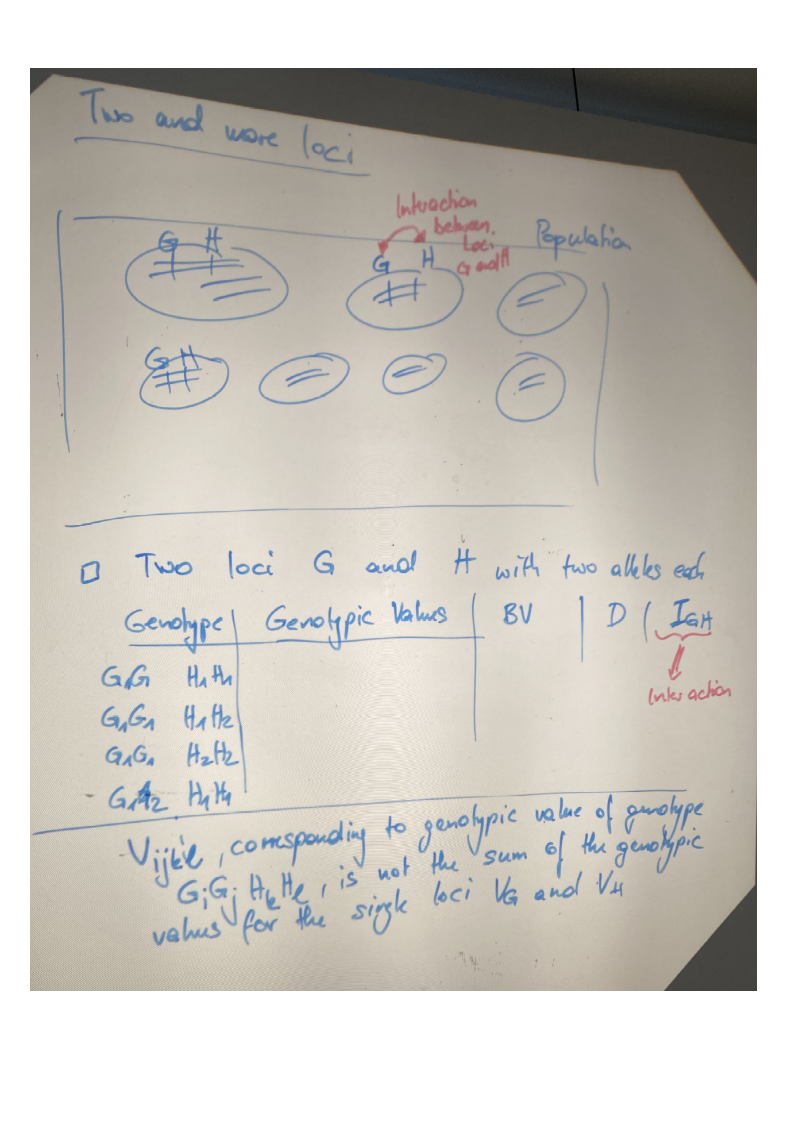 Two and more loci
Interaction
between
Loci
G and H
Population
G H
G H
G H
□ Two loci G and H with two alleles each
Genotype | Genotypic Values | BV | D | I_GH
Interaction
G₁G₁ H₁H₁
G₁G₁ H₁H₂
G₁G₁ H₂H₂
G₁G₂ H₁H₁
V_ijkl, corresponding to genotypic value of genotype
G_iG_j H_kH_l, is not the sum of the genotypic
values for the single loci V_G and V_H